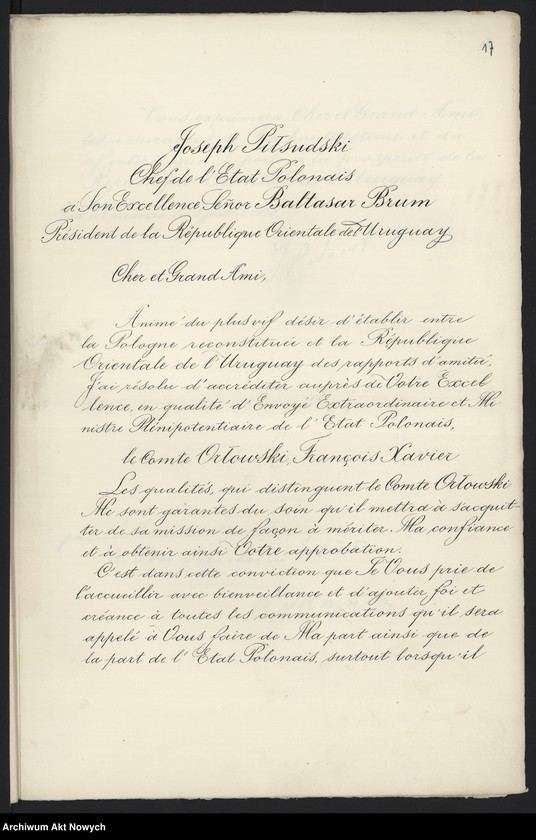 17
Joseph Piłsudski
Chef de l'Etat Polonais
a Son Excellence Señor Baltasar Brum
Président de la République Orientale de l'Uruguay
Cher et Grand Ami,
Animé du plus vif désir d'établir entre
la Pologne reconstituée et la République
Orientale de l'Uruguay des rapports d'amitié,
J'ai résolu d'accréditer auprès de Votre Excel
lence, en qualité d'Envoyé Extraordinaire et Mi
nistre Plénipotentiaire de l'Etat Polonais,
le Comte Orłowski, François Xavier
Les qualités, qui distinguent le Comte Orłowski
Me sont garantes du soin qu'il mettra à s'acquit-
ter de sa mission de façon à mériter Ma confiance
et à obtenir ainsi Votre approbation.
C'est dans cette conviction que Je Vous prie de
l'accueillir avec bienveillance et d'ajouter foi et
créance à toutes les communications qu'il sera
appelé à Vous faire de Ma part ainsi que de
la part de l'Etat Polonais, surtout lorsqu'il
Archiwum Akt Nowych